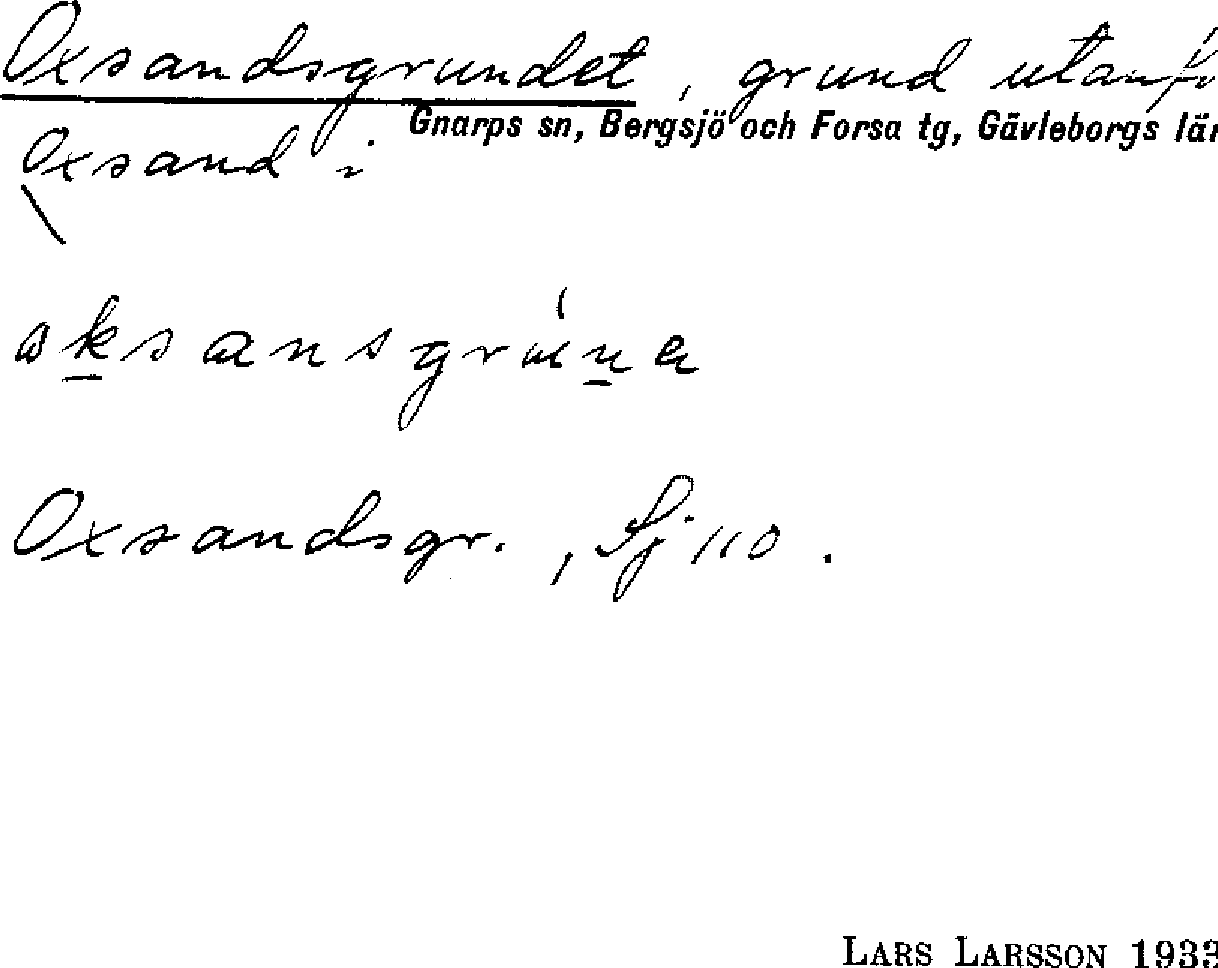 Oxsandsgrundet, grund utanfö
Gnarps sn, Bergsjö och Forsa tg, Gävleborgs lä
Oxsand i
Oxsandsgr., Sj 110.
LARS LARSSON 193